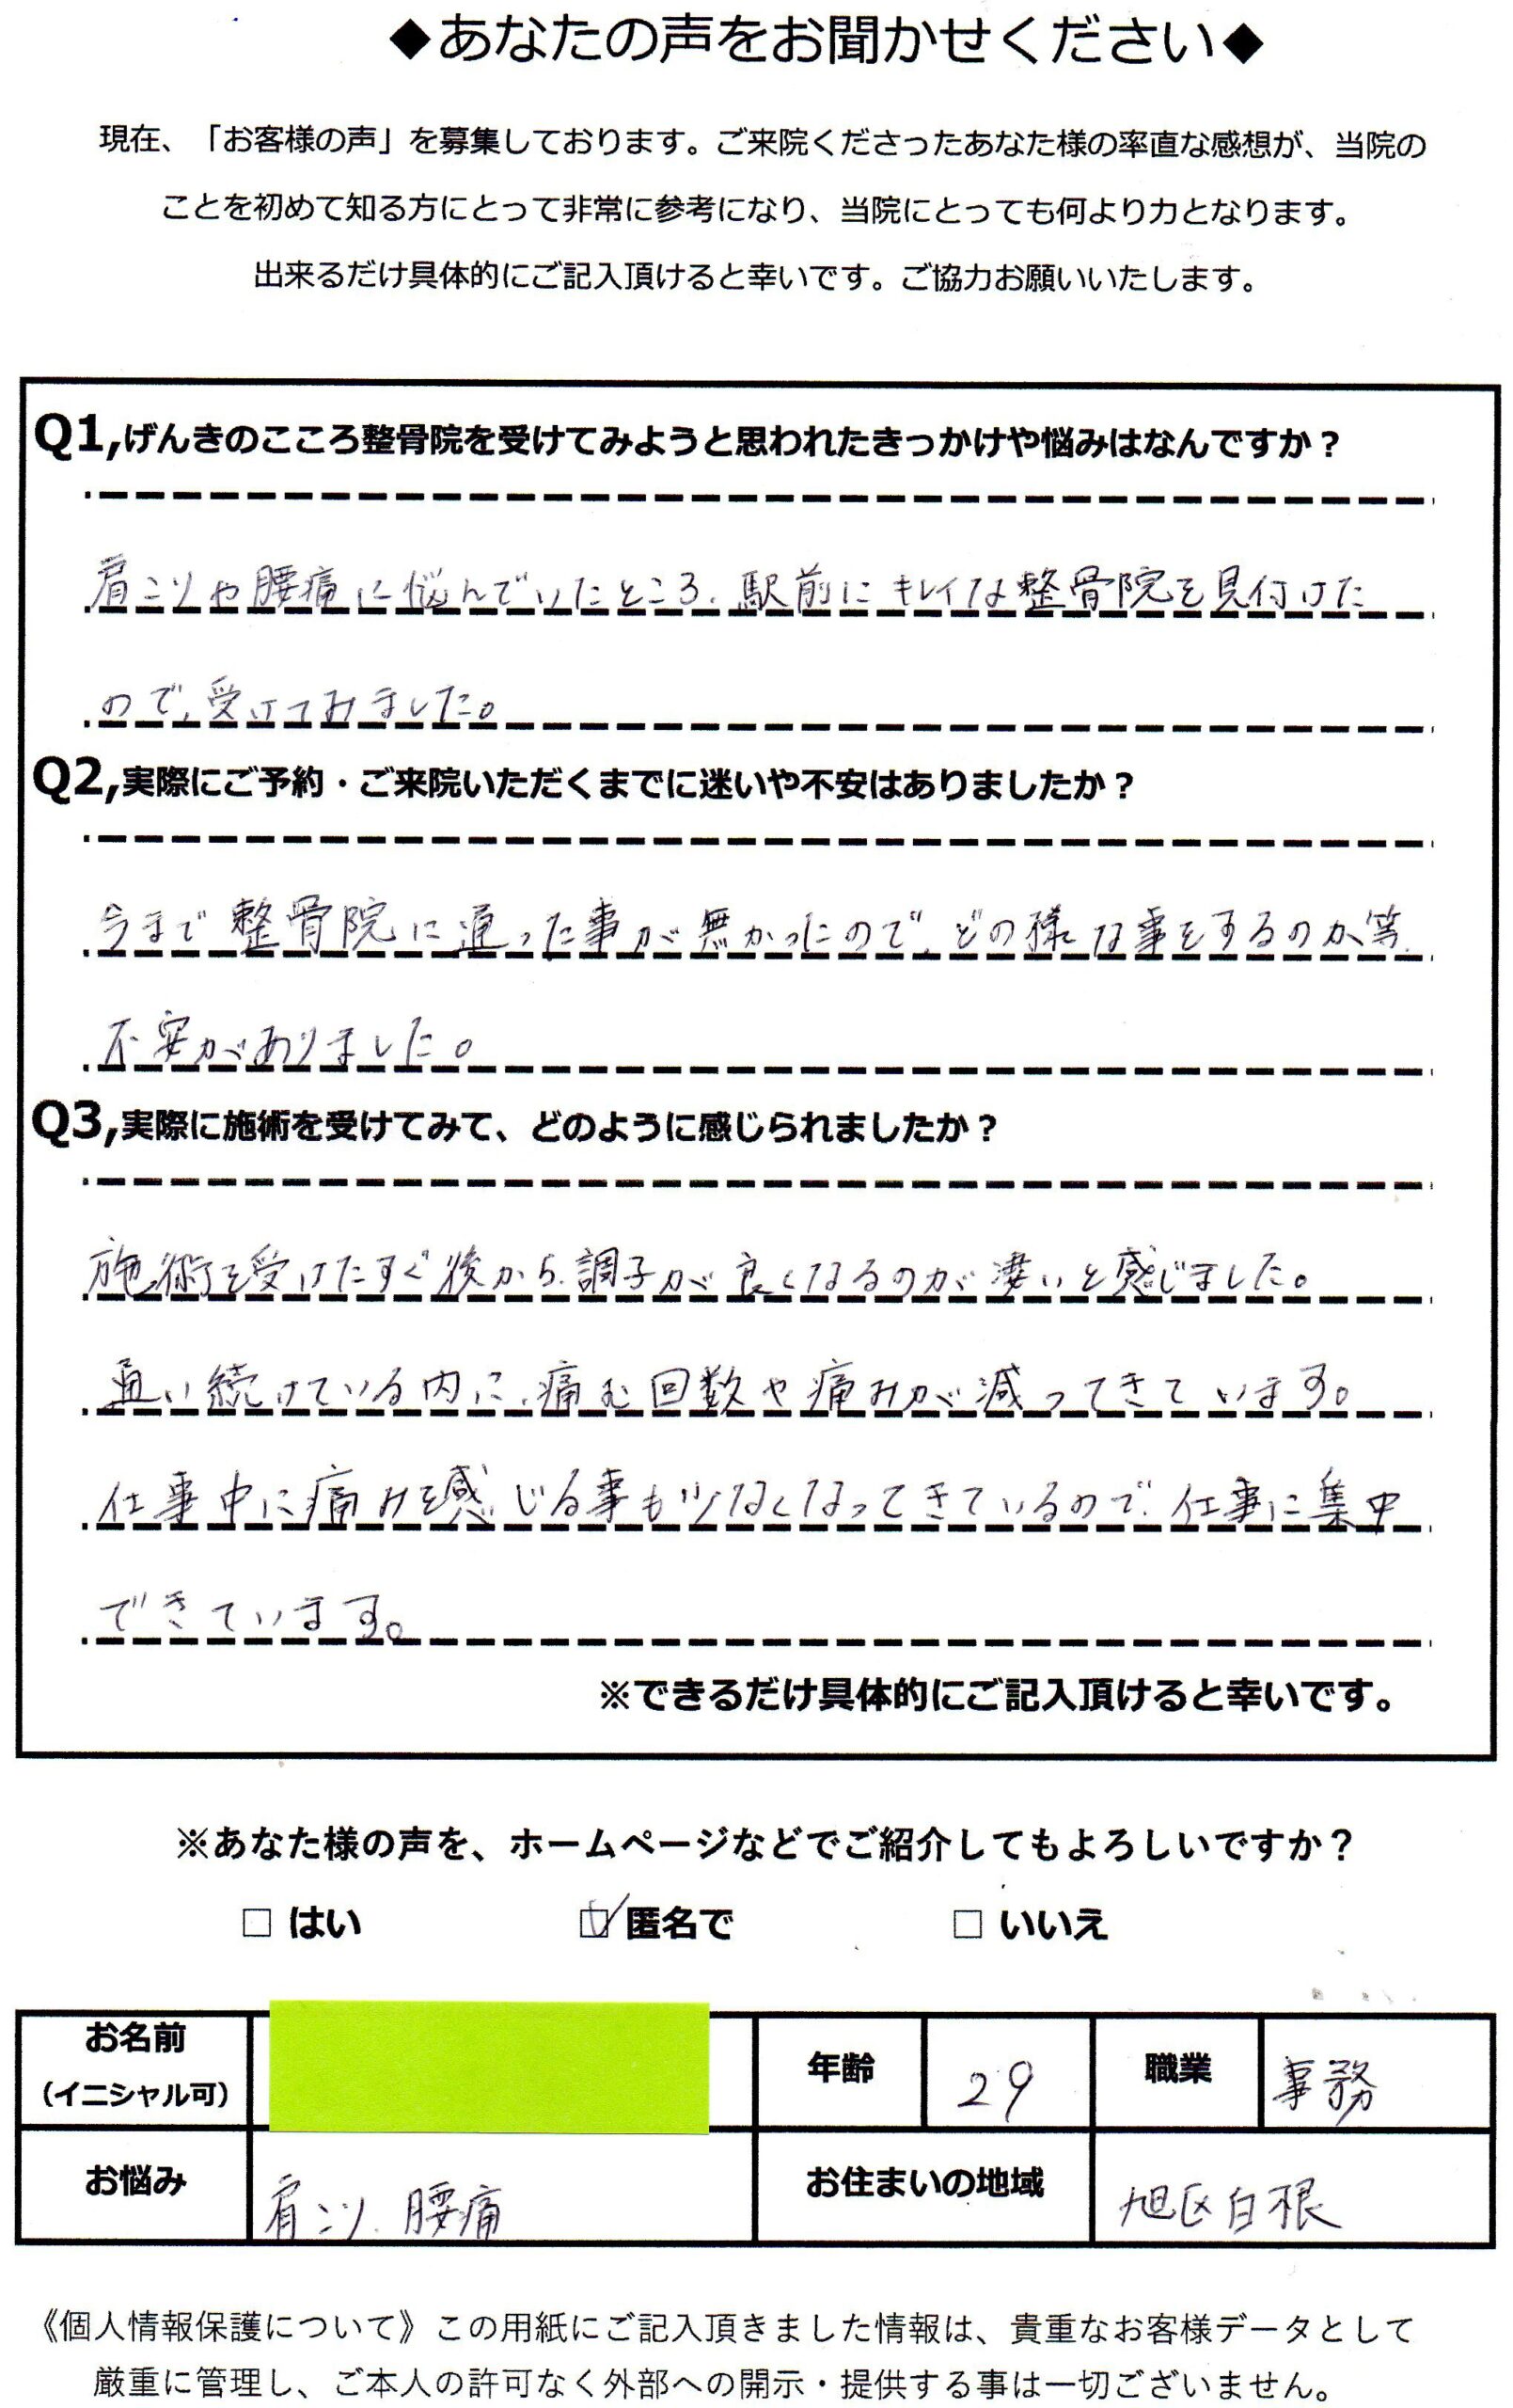 ◆あなたの声をお聞かせください◆
現在、「お客様の声」を募集しております。ご来院くださったあなた様の率直な感想が、当院の
ことを初めて知る方にとって非常に参考になり、当院にとっても何より力となります。
出来るだけ具体的にご記入頂けると幸いです。ご協力お願いいたします。
Q1,げんきのこころ整骨院を受けてみようと思われたきっかけや悩みはなんですか？
肩こりや腰痛に悩んでいたところ、駅前にキレイな整骨院を見付けた
ので、受けてみました。
Q2,実際にご予約・ご来院いただくまでに迷いや不安はありましたか？
今まで整骨院に通った事が無かったので、どの様な事をするのか等、
不安がありました。
Q3,実際に施術を受けてみて、どのように感じられましたか？
施術を受けたすぐ後から、調子が良くなるのが凄いと感じました。
通い続けている内に、痛む回数や痛みが減ってきています。
仕事中に痛みを感じる事も少なくなってきているので、仕事に集中
できています。
※できるだけ具体的にご記入頂けると幸いです。
※あなた様の声を、ホームページなどでご紹介してもよろしいですか？
□ はい ☑ 匿名で □ いいえ
お名前 （イニシャル可） 年齢 29 職業 事務
お悩み 肩こり、腰痛 お住まいの地域 旭区白根
《個人情報保護について》この用紙にご記入頂きました情報は、貴重なお客様データとして
厳重に管理し、ご本人の許可なく外部への開示・提供する事は一切ございません。